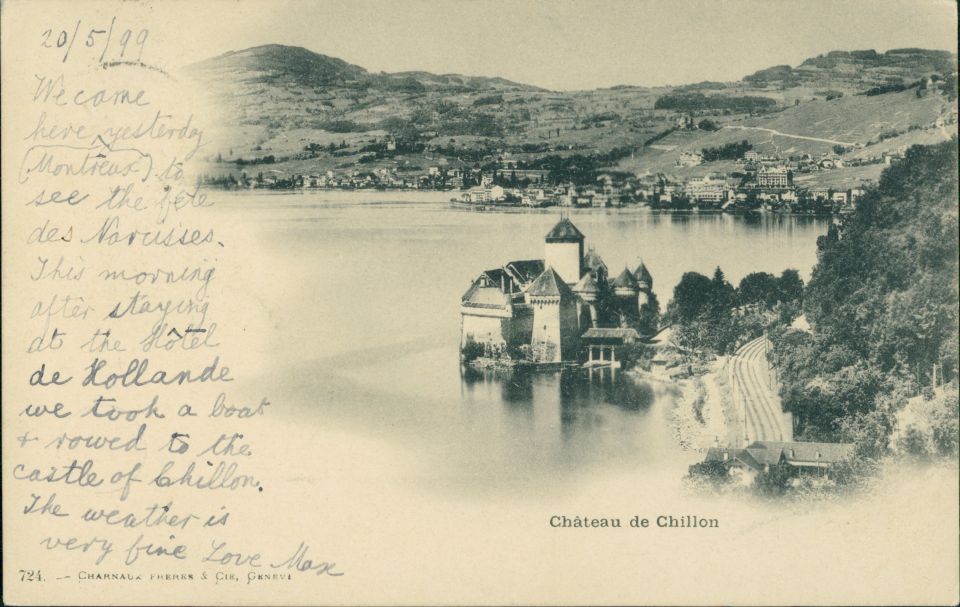 20/5/99
We came
here yesterday
(Montreux) to
see the fête
des Narcisses.
This morning
after staying
at the Hôtel
de Hollande
we took a boat
+ rowed to the
castle of Chillon.
The weather is
very fine Love Max
Château de Chillon
724. — CHARNAUX FRÈRES & CIE, GENÈVE